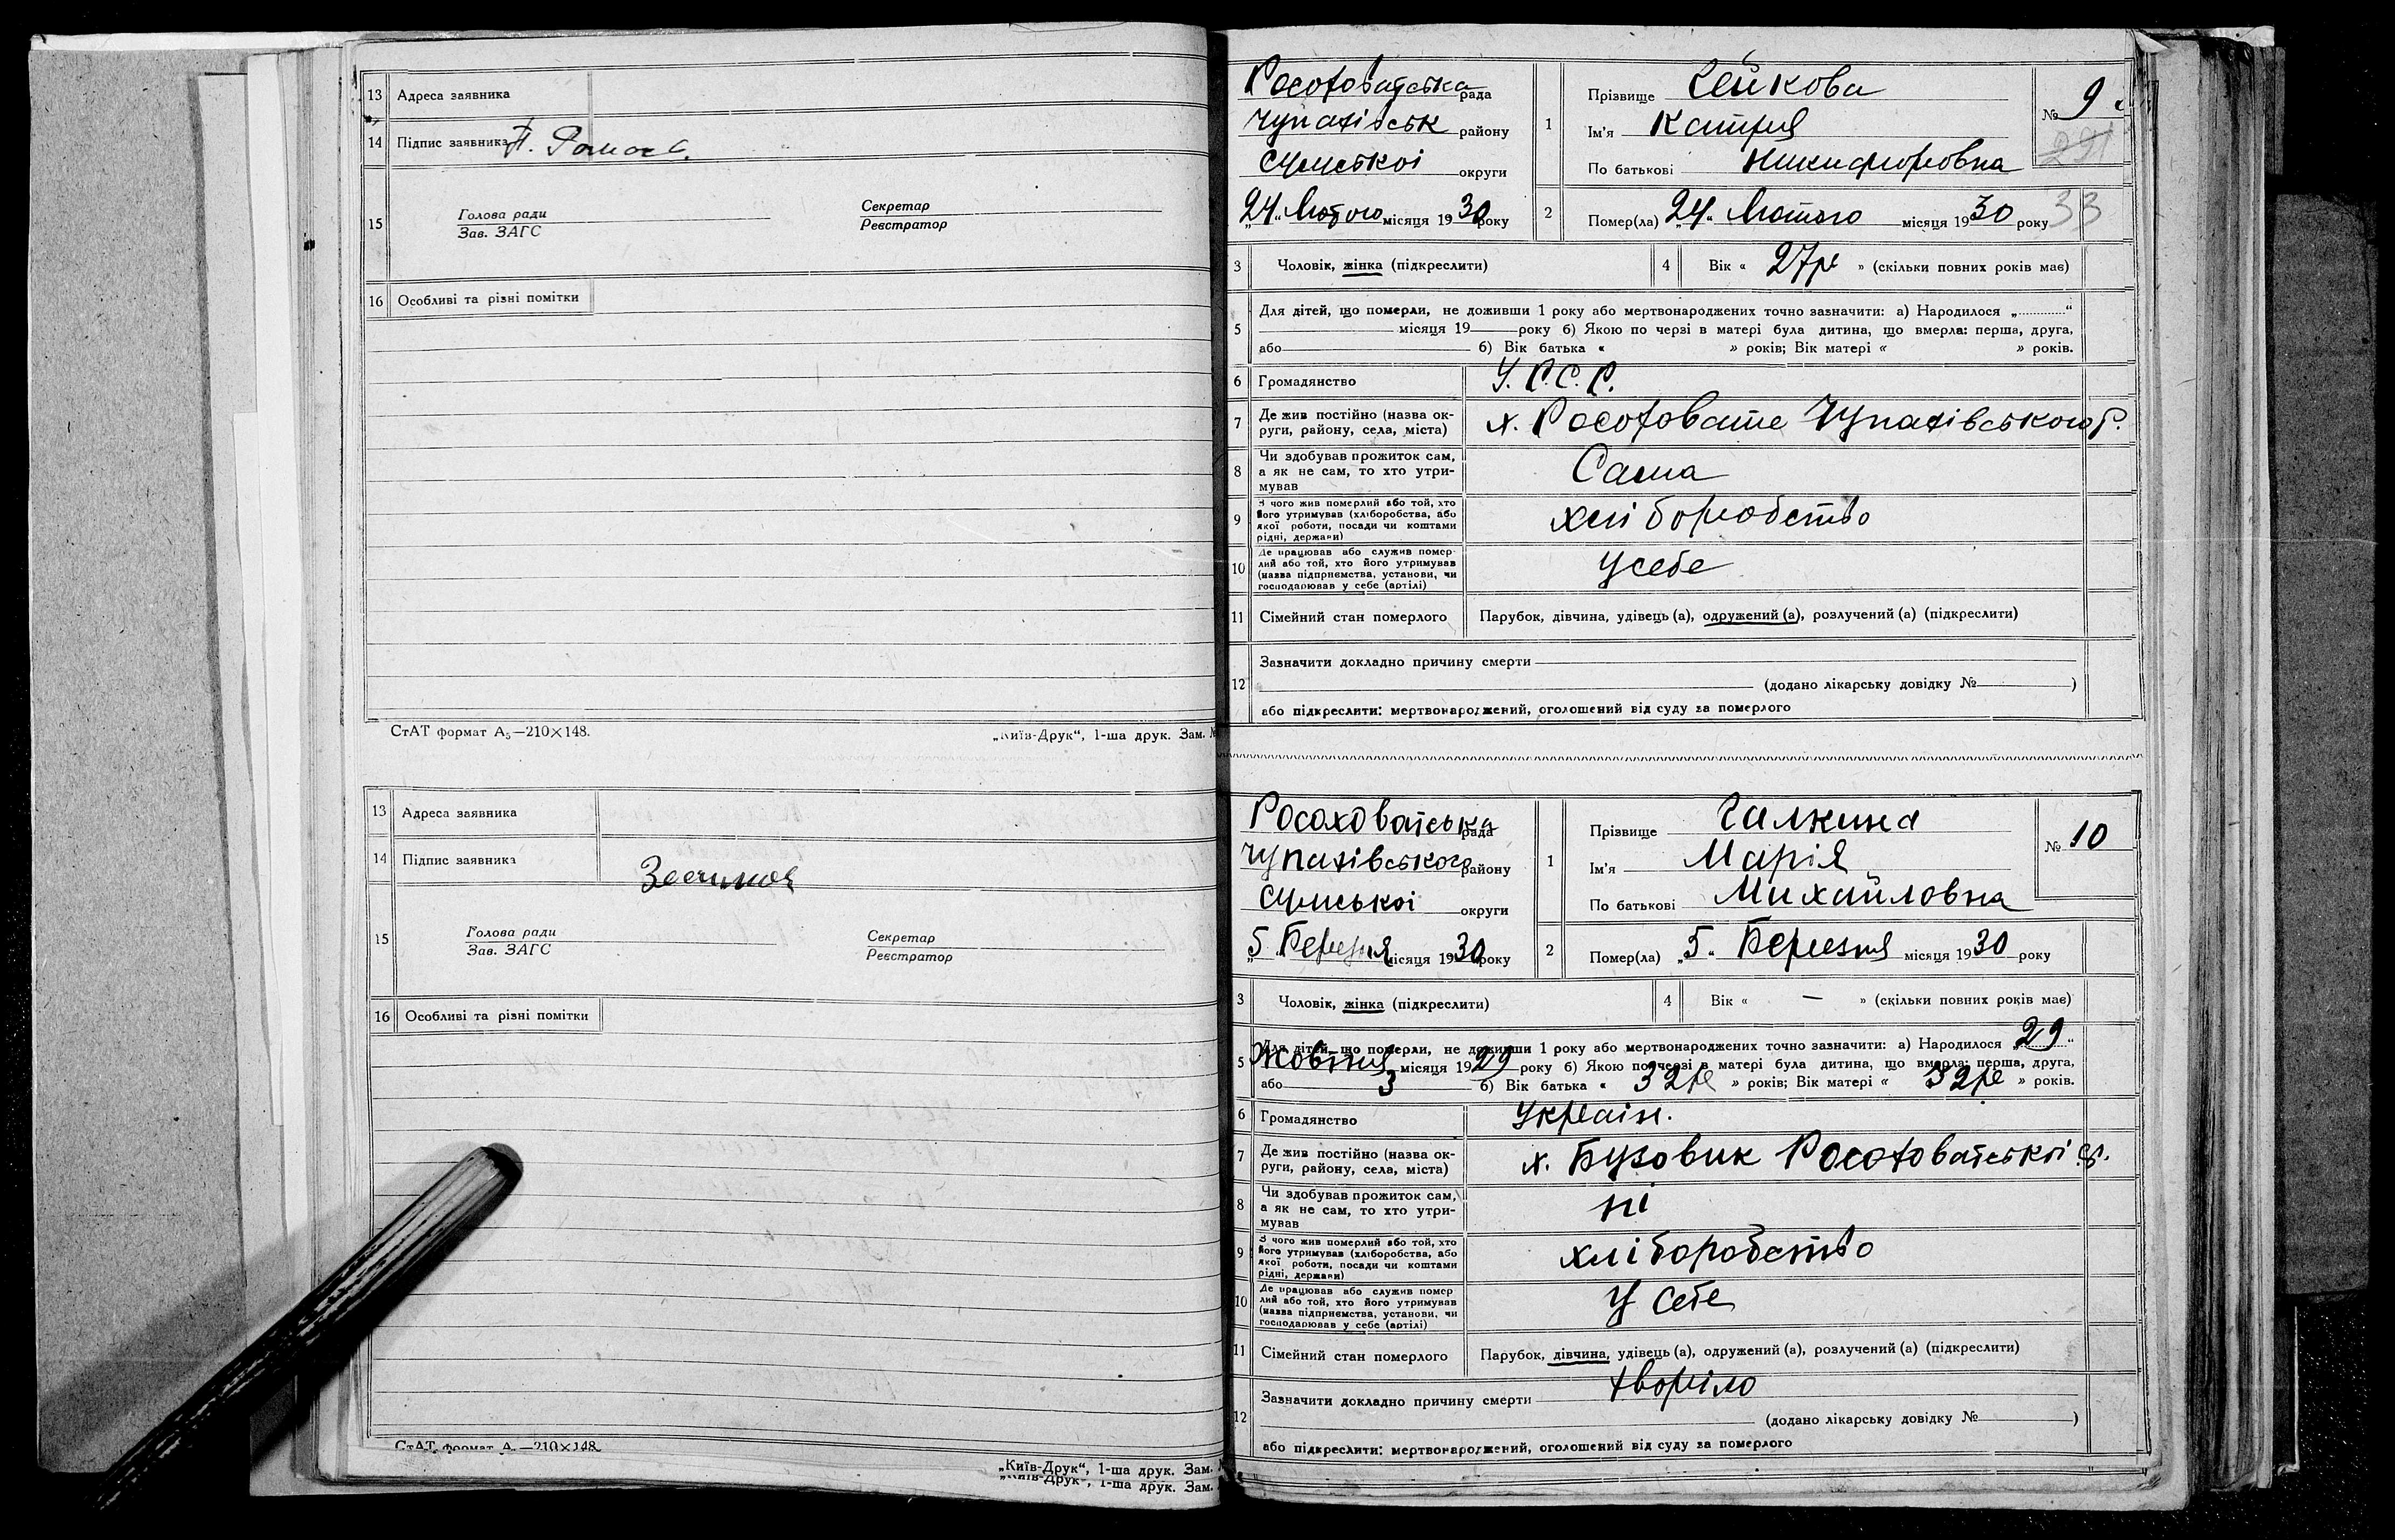 13 Адреса заявника
14 Підпис заявника
15 Голова ради
Зав. ЗАГС
Секретар
Реєстратор
16 Особливі та різні помітки
СтАТ формат А₅—210×148.
„Київ-Друк“, 1-ша друк. Зам. №
13 Адреса заявника
14 Підпис заявника
15 Голова ради
Зав. ЗАГС
Секретар
Реєстратор
16 Особливі та різні помітки
СтАТ формат А₅—210×148.
„Київ-Друк“, 1-ша друк. Зам.
„Київ-Друк“, 1-ша друк. Зам.
Росоховатська рада
Чупахівськ району
Сумськоі округи
„24“ Лютого місяця 1930 року
1 Прізвище
Ім'я Катрия
По батькові Никифоровна
№ 9
291
2 Помер(ла) „24“ Лютого місяця 1930 року
33
3 Чоловік, жінка (підкреслити)
4 Вік « 27р » (скільки повних років має)
5 Для дітей, що померли, не доживши 1 року або мертвонароджених точно зазначити: а) Народилося „ “
місяця 19 року б) Якою по черзі в матері була дитина, що вмерла: перша, друга,
або б) Вік батька « » років; Вік матері « » років.
6 Громадянство У.Р.С.Р.
7 Де жив постійно (назва округи, району, села, міста) х. Росоховате Чупахівського р.
8 Чи здобував прожиток сам, а як не сам, то хто утримував Сама
9 З чого жив померлий або той, хто його утримував (хліборобства, або якої роботи, посади чи коштами рідні, держави) хліборобство
10 Де працював або служив померлий або той, хто його утримував (назва підприємства, установи, чи господарював у себе (артілі) У себе
11 Сімейний стан померлого Парубок, дівчина, удівець (а), одружений (а), розлучений (а) (підкреслити)
12 Зазначити докладно причину смерти
(додано лікарську довідку № )
або підкреслити: мертвонароджений, оголошений від суду за померлого
Росоховатська рада
Чупахівського району
Сумськоі округи
„5“ Березня місяця 1930 року
1 Прізвище Галкина
Ім'я Марія
По батькові Михайловна
№ 10
2 Помер(ла) „5“ Березня місяця 1930 року
3 Чоловік, жінка (підкреслити)
4 Вік « — » (скільки повних років має)
5 Для дітей, що померли, не доживши 1 року або мертвонароджених точно зазначити: а) Народилося „29“
Жовтня місяця 1929 року б) Якою по черзі в матері була дитина, що вмерла: перша, друга,
або 3 б) Вік батька « 32р » років; Вік матері « 32р » років.
6 Громадянство Украін.
7 Де жив постійно (назва округи, району, села, міста) х. Бузовик Росоховатськоі
8 Чи здобував прожиток сам, а як не сам, то хто утримував ні
9 З чого жив померлий або той, хто його утримував (хліборобства, або якої роботи, посади чи коштами рідні, держави) хліборобство
10 Де працював або служив померлий або той, хто його утримував (назва підприємства, установи, чи господарював у себе (артілі) У себе
11 Сімейний стан померлого Парубок, дівчина, удівець (а), одружений (а), розлучений (а) (підкреслити)
12 Зазначити докладно причину смерти хворіло
(додано лікарську довідку № )
або підкреслити: мертвонароджений, оголошений від суду за померлого